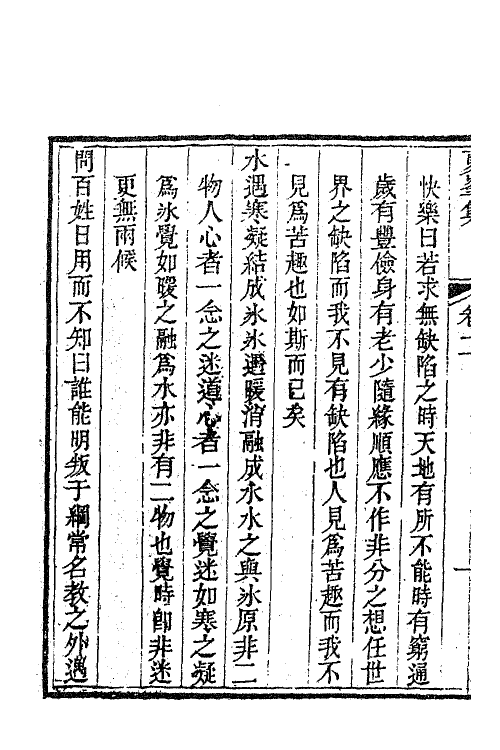 卷二
快樂曰若求無缺陷之時天地有所不能時有窮通
歲有豐儉身有老少隨緣順應不作非分之想任世
界之缺陷而我不見有缺陷也人見爲苦趣而我不
見爲苦趣也如斯而已矣
水遇寒凝結成氷氷遇暖消融成水水之與氷原非二
物人心者一念之迷道心者一念之覺迷如寒之凝
爲氷覺如暖之融爲水亦非有二物也覺時卽非迷
更無兩候
問百姓日用而不知曰誰能明叛于綱常名敎之外遇